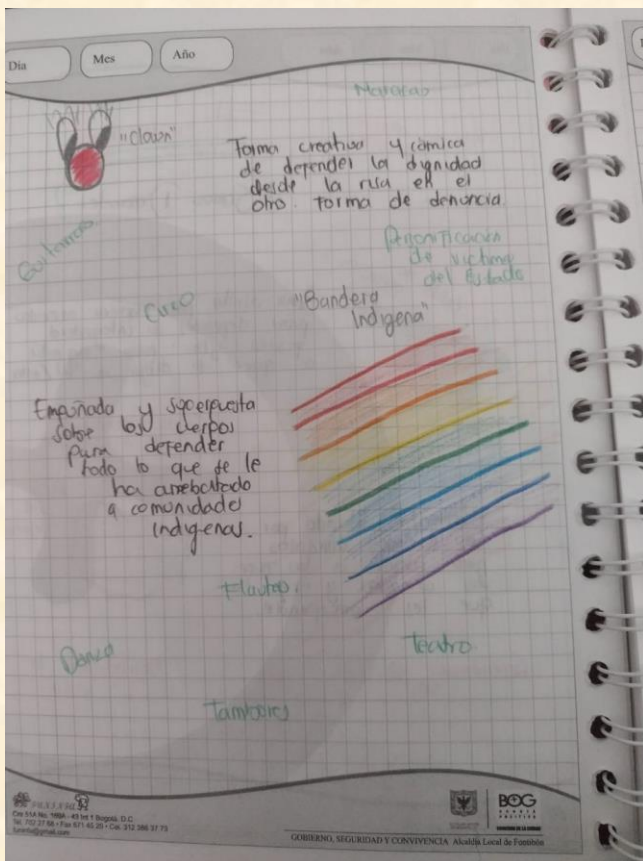 Día
Mes
Año
Maracas
"Clown"
Forma creativa y cómica
de defender la dignidad
desde la risa en el
otro. Forma de denuncia.
Personificación
de víctima
del Estado
Circo
"Bandera
Indígena"
Empuñada y
sobre los cuerpos
para defender
todo lo que se le
ha arrebatado
a comunidades
indígenas.
Flautas.
Danza
Teatro
Tambores
Bogotá, D.C.
BOG
GOBIERNO, SEGURIDAD Y CONVIVENCIA Alcaldía Local de Fontibón